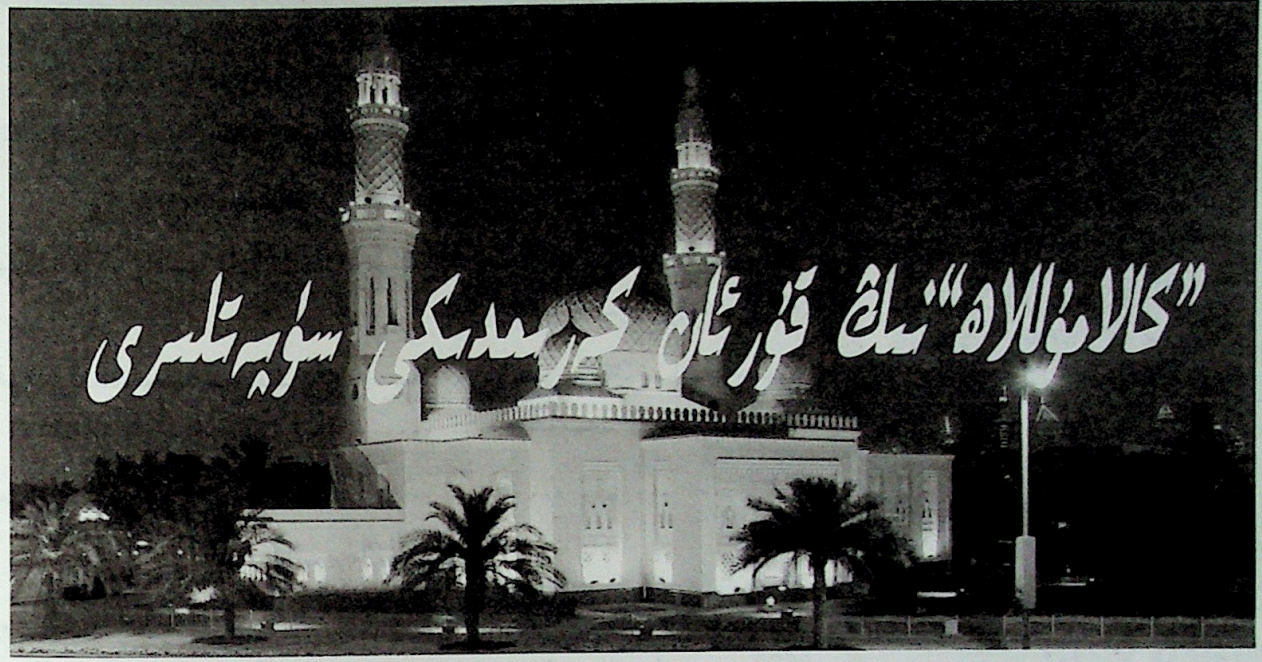 ”كالامۇللاھ“نىڭ قۇرئان كەرىمدىكى سۈپەتلىرى